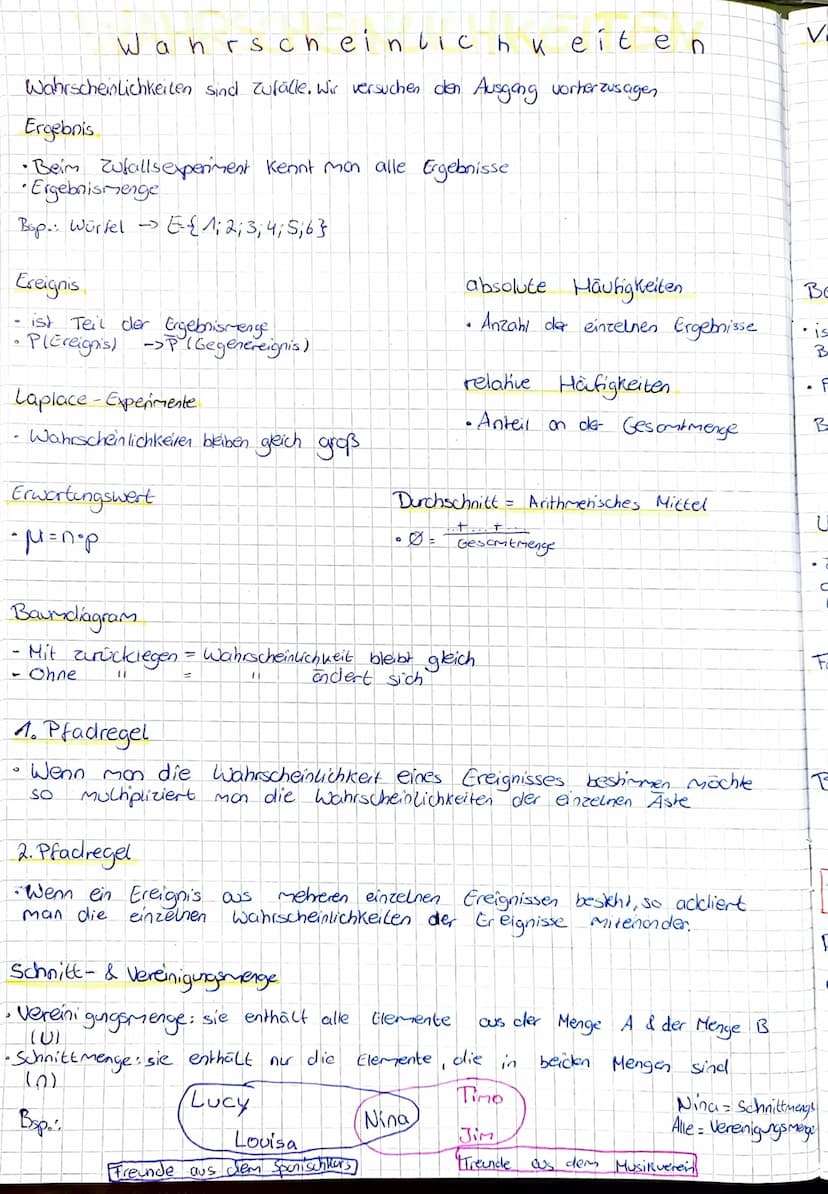 Wahrscheinlichkeiten
Wahrscheinlichkeiten sind Zufälle. Wir versuchen den Ausgang vorherzusagen
Ergebnis
• Beim Zufallsexperiment kennt man alle Ergebnisse
• Ergebnismenge
Bsp.: Würfel → E={1;2;3;4;5;6}
Ereignis
- ist Teil der Ergebnismenge
• P(Ereignis) → P̅ (Gegenereignis)
absolute Häufigkeiten
• Anzahl der einzelnen Ergebnisse
relative Häufigkeiten
• Anteil an der Gesamtmenge
Laplace-Experimente
- Wahrscheinlichkeiten bleiben gleich groß
Erwartungswert
• μ = n•p
Durchschnitt = Arithmetisches Mittel
• Ø = ...+...+... / Gesamtmenge
Baumdiagram
- Mit zurücklegen = Wahrscheinlichkeit bleibt gleich
- Ohne " = " ändert sich
1. Pfadregel
• Wenn man die Wahrscheinlichkeit eines Ereignisses bestimmen möchte
so multipliziert man die Wahrscheinlichkeiten der einzelnen Äste
2. Pfadregel
• Wenn ein Ereignis aus mehreren einzelnen Ereignissen besteht, so addiert
man die einzelnen Wahrscheinlichkeiten der Ereignisse miteinander.
Schnitt- & Vereinigungsmenge
• Vereinigungsmenge: sie enthält alle Elemente aus der Menge A & der Menge B
(∪)
• Schnittmenge: sie enthält nur die Elemente, die in beiden Mengen sind
(∩)
Bsp.:
Lucy
Louisa
Nina
Timo
Jim
Nina = Schnittmenge
Alle = Vereinigungsmenge
Freunde aus dem Spanischkurs
Freunde aus dem Musikverein